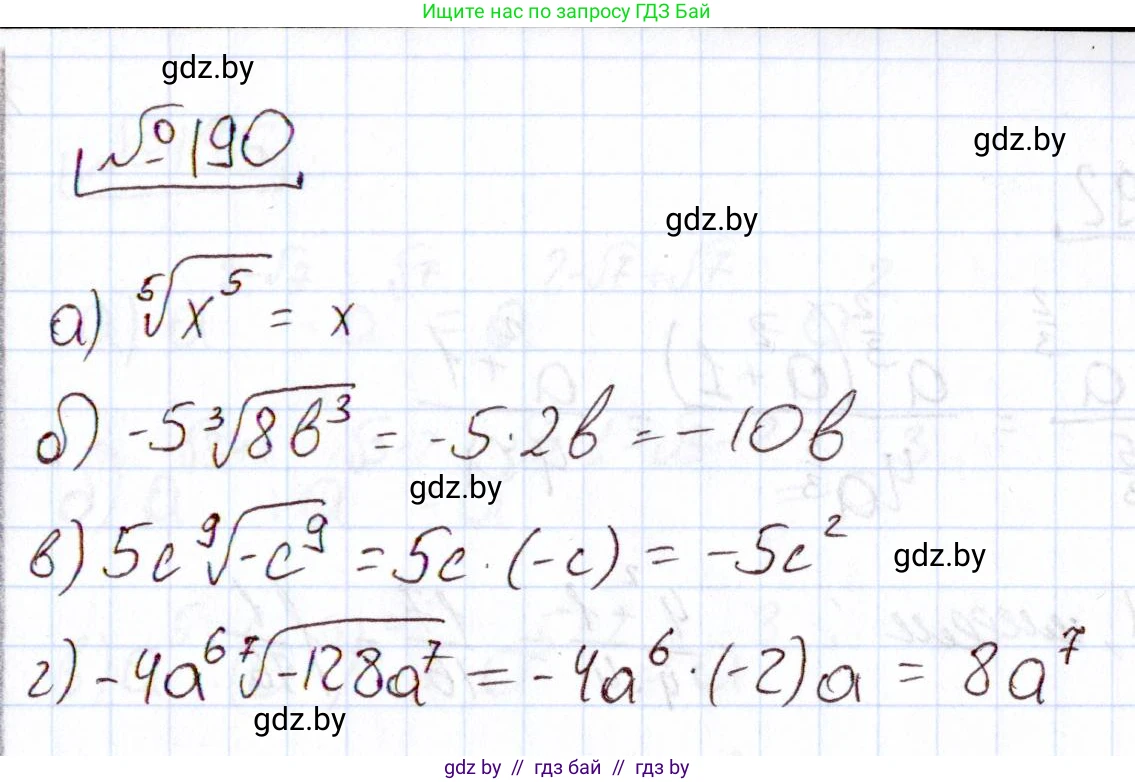 Ищите нас по запросу ГДЗ Бай
gdz.by
№190
gdz.by
gdz.by
а) ⁵√x⁵ = x
б) -5 ³√8b³ = -5·2b = -10b
gdz.by
в) 5c ⁹√-c⁹ = 5c·(-c) = -5c²
gdz.by
г) -4a⁶ ⁷√-128a⁷ = -4a⁶·(-2)a = 8a⁷
gdz.by
gdz by // гдз бай // гдз by